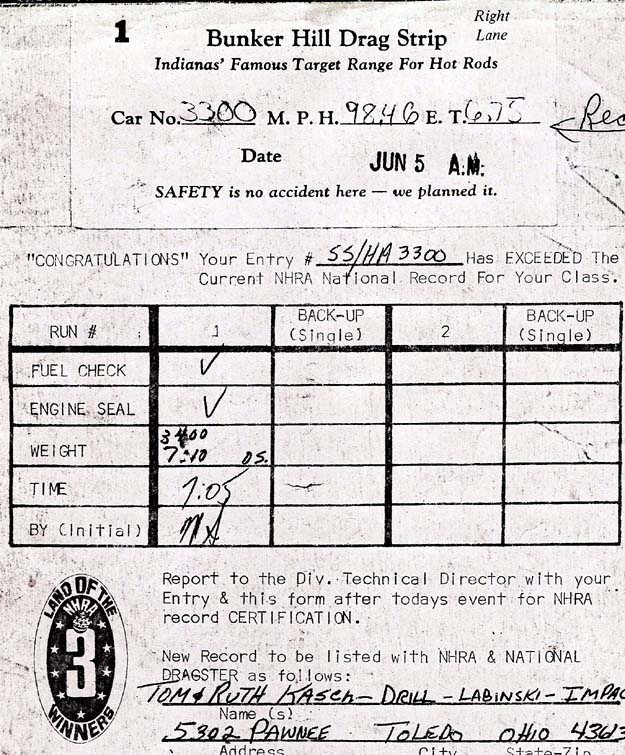 1
Right
Lane
Bunker Hill Drag Strip
Indianas' Famous Target Range For Hot Rods
Car No. 3300 M. P. H. 98.46 E. T. 6.75 ← Rec
Date JUN 5 A.M.
SAFETY is no accident here — we planned it.
"CONGRATULATIONS" Your Entry # SS/HA 3300 Has EXCEEDED The
Current NHRA National Record For Your Class.
RUN # 1 BACK-UP (Single) 2 BACK-UP (Single)
FUEL CHECK ✓
ENGINE SEAL ✓
WEIGHT 3400
7:10 D.S.
TIME 7:05
BY (Initial)
LAND OF THE
NHRA
3
WINNERS
Report to the Div. Technical Director with your
Entry & this form after todays event for NHRA
record CERTIFICATION.
New Record to be listed with NHRA & NATIONAL
DRAGSTER as follows:
TOM & RUTH KASCH - DRILL - LABINSKI - IMPAC
Name (s)
5302 PAWNEE TOLEDO OHIO 43613
Address City State-Zip